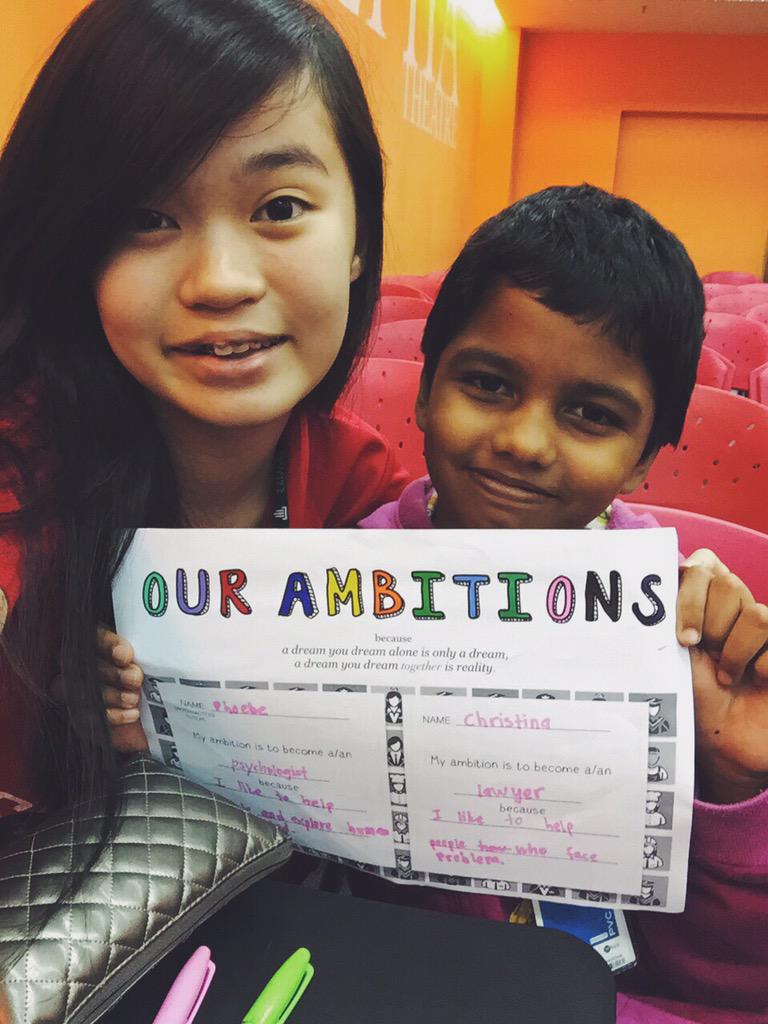 THEATRE
OUR AMBITIONS
because
a dream you dream alone is only a dream,
a dream you dream together is reality.
NAME Phoebe
My ambition is to become a/an
psychologist
because
I like to help
and explore human
NAME Christina
My ambition is to become a/an
lawyer
because
I like to help
people who face
problem.
PVC